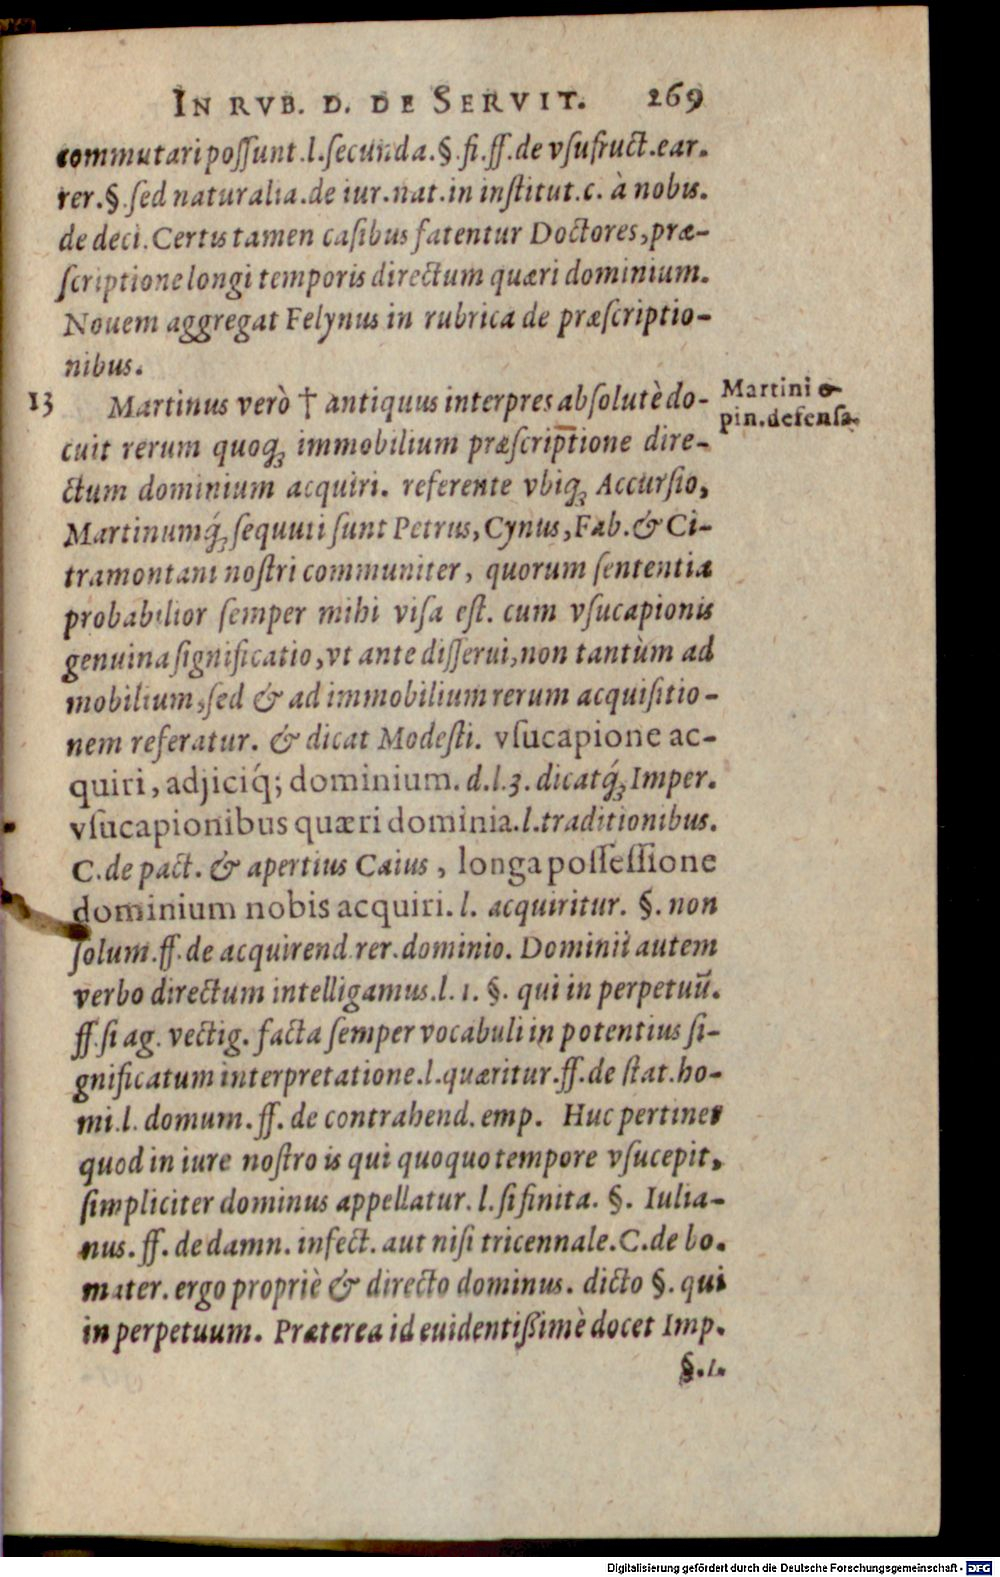 IN RVB. D. DE SERVIT. 269
commutari possunt.l.secunda.§.fi.ff.de vsufruct.ear.
rer.§.sed naturalia.de iur.nat.in institut.c. à nobis.
de deci.Certis tamen casibus fatentur Doctores,præ-
scriptione longi temporis directum quæri dominium.
Nouem aggregat Felynus in rubrica de præscriptio-
nibus.
13 Martinus verò † antiquus interpres absolutè do-
Martini o-
pin.defensa.
cuit rerum quoq; immobilium præscriptione dire-
ctum dominium acquiri. referente vbiq; Accursio,
Martinumq́; sequuti sunt Petrus, Cynus, Fab.& Ci-
tramontani nostri communiter, quorum sententia
probabilior semper mihi visa est. cum vsucapionis
genuina significatio, vt ante disserui, non tantùm ad
mobilium, sed & ad immobilium rerum acquisitio-
nem referatur. & dicat Modesti. vsucapione ac-
quiri, adjiciq́; dominium. d.l.3. dicatq́; Imper.
vsucapionibus quæri dominia.l.traditionibus.
C.de pact. & apertius Caius, longa possessione
dominium nobis acquiri. l. acquiritur. §. non
solum.ff.de acquirend.rer.dominio. Dominii autem
verbo directum intelligamus.l. 1. §. qui in perpetuū.
ff.si ag. vectig. facta semper vocabuli in potentius si-
gnificatum interpretatione.l.quæritur.ff.de stat.ho-
mi.l. domum. ff. de contrahend. emp. Huc pertinet
quod in iure nostro is qui quoquo tempore vsucepit,
simpliciter dominus appellatur. l. si finita. §. Iulia-
nus. ff. de damn. infect. aut nisi tricennale.C.de bo.
mater. ergo propriè & directo dominus. dicto §. qui
in perpetuum. Præterea id euidentissimè docet Imp.
§.l.
Digitalisierung gefördert durch die Deutsche Forschungsgemeinschaft - DFG